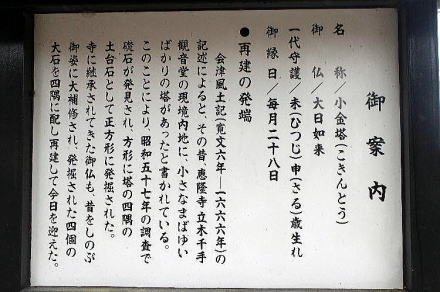 御案内
名称／小金塔（こきんとう）
御仏／大日如来
一代守護／未（ひつじ）申（さる）歳生れ
御縁日／毎月二十八日
●再建の発端
会津風土記（寛文六年—一六六六年）の
記述によると、その昔、恵隆寺立木千手
観音堂の現境内地に、小さなまばゆい
ばかりの塔があったと書かれている。
このことにより、昭和五十七年の調査で
礎石が発見され、方形に塔の四隅の
土台石として正方形に発掘された。
寺に継承されてきた御仏も、昔をしのぶ
御姿に大補修され、発掘された四個の
大石を四隅に配し再建して今日を迎えた。